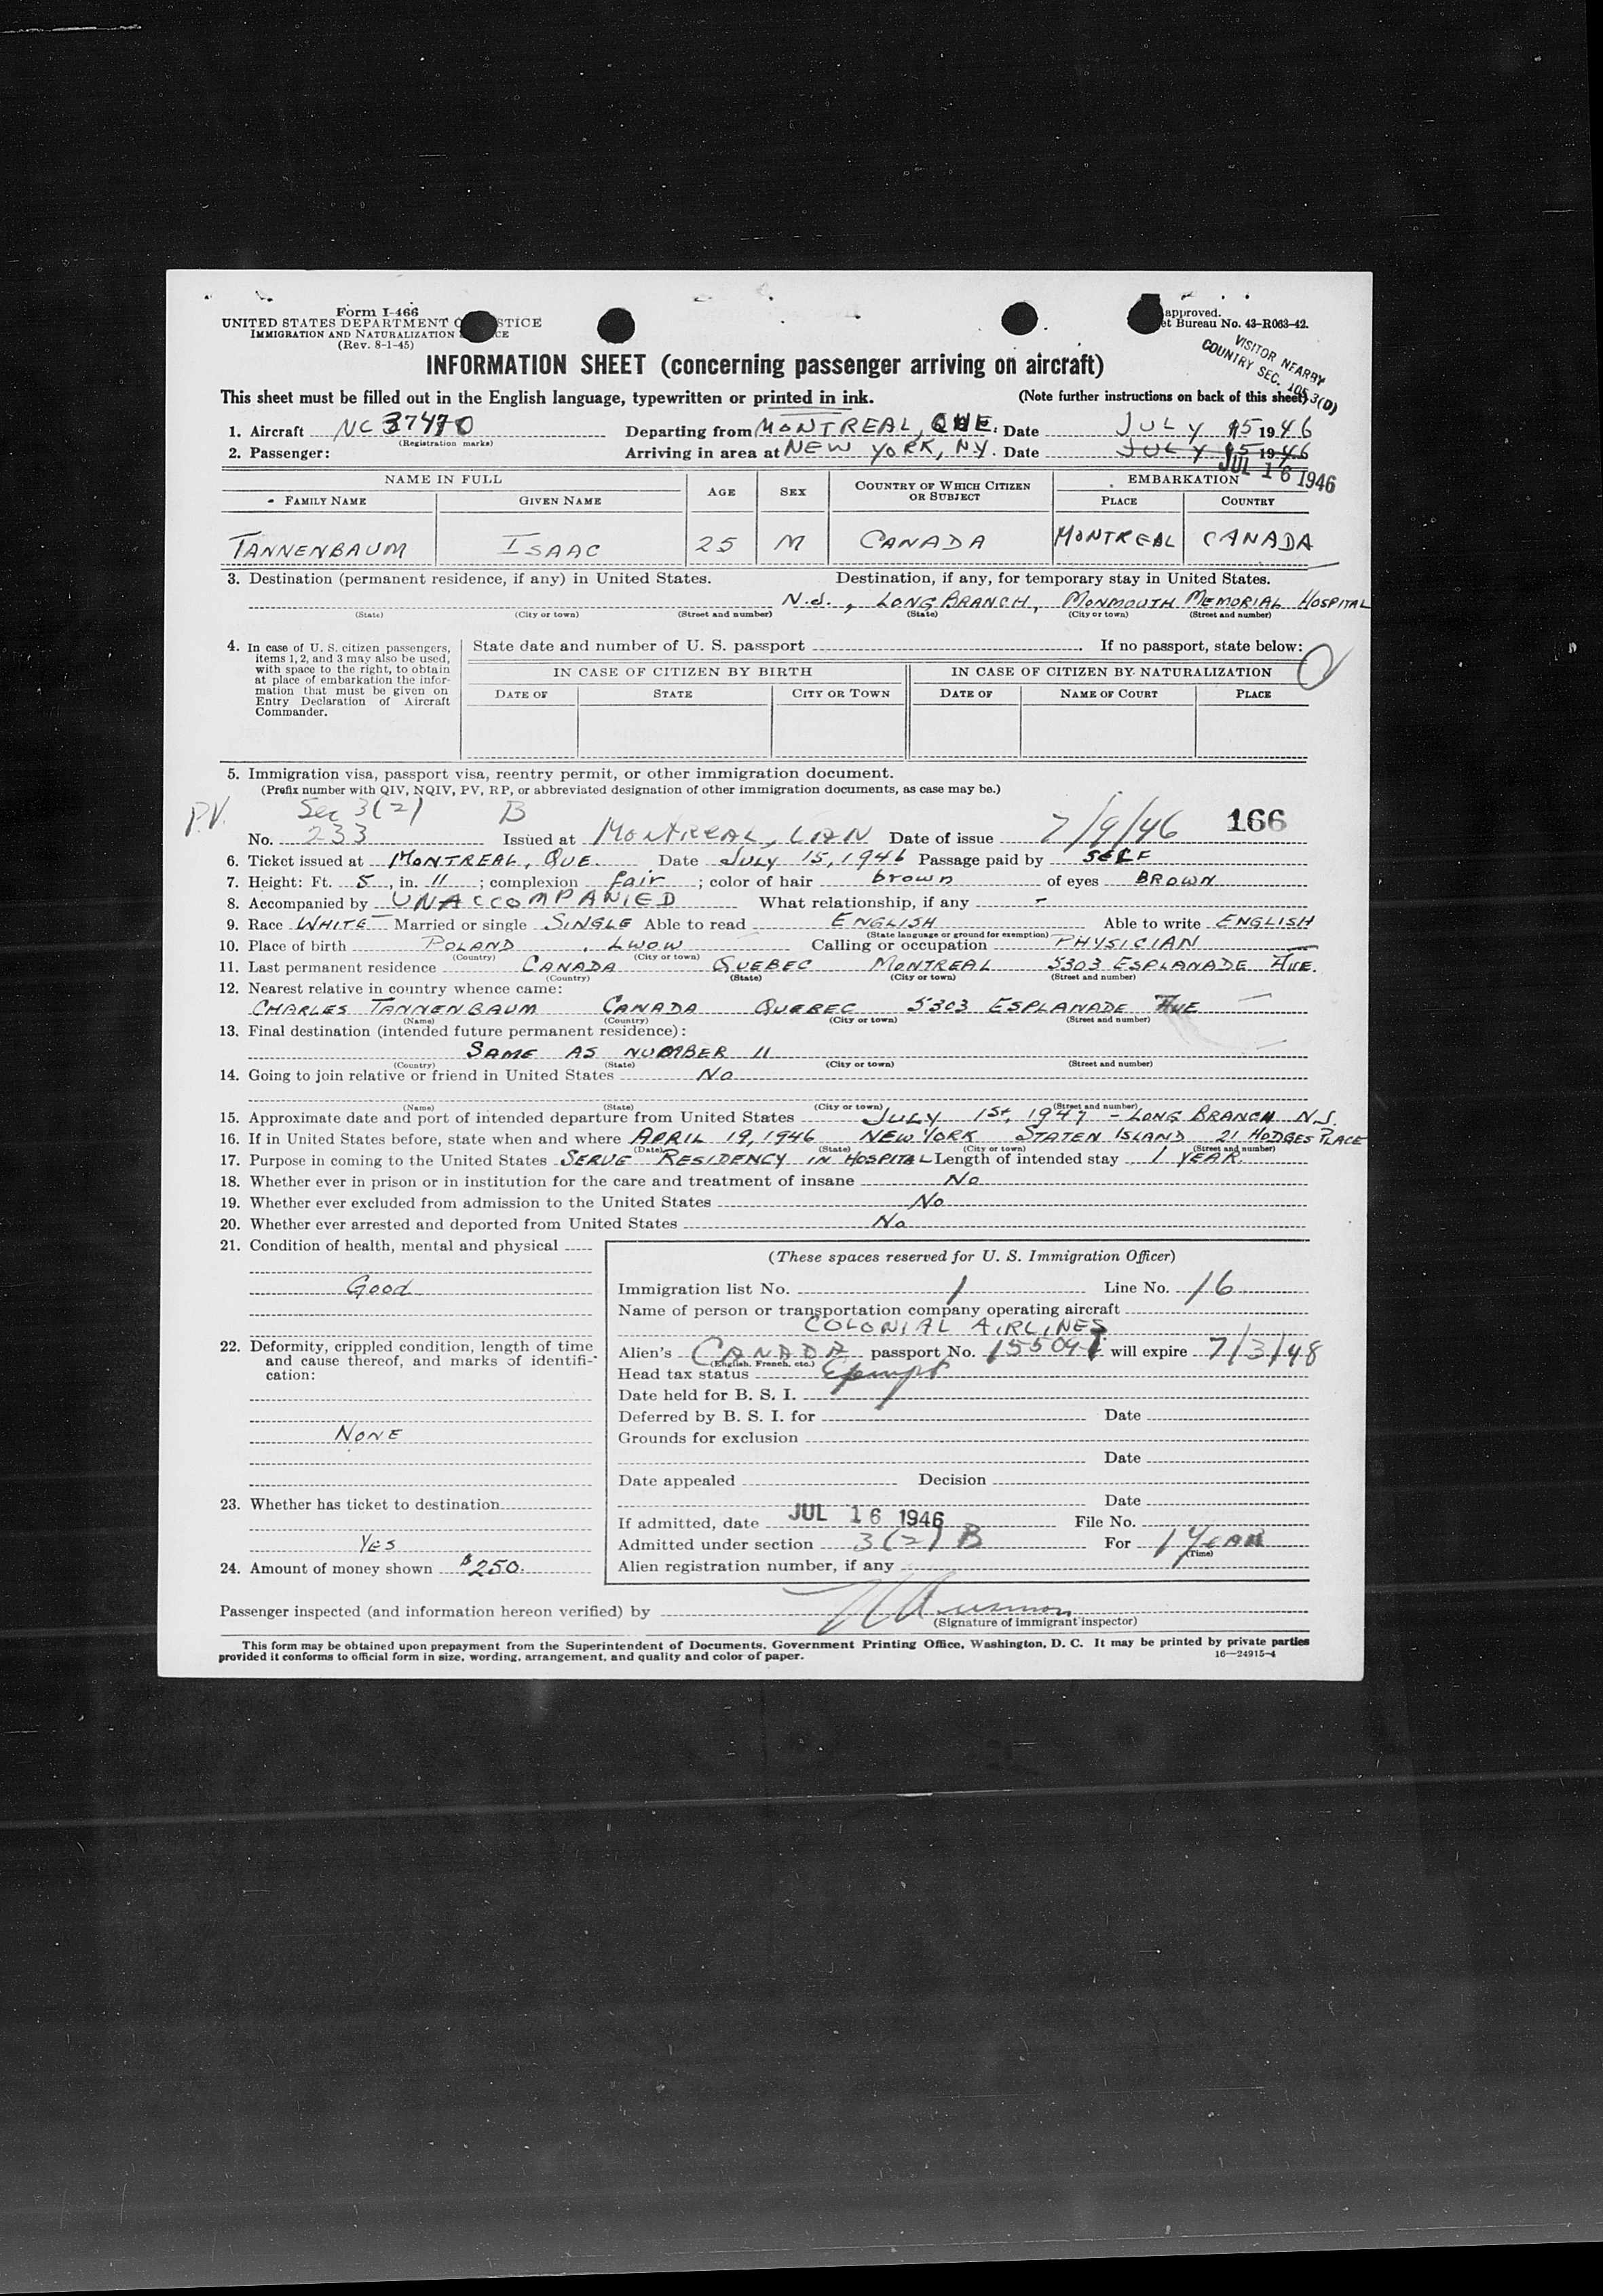 Form I-466
UNITED STATES DEPARTMENT O STICE
IMMIGRATION AND NATURALIZATION CE
(Rev. 8-1-45)
approved.
et Bureau No. 43-R063-42.
VISITOR NEARBY
COUNTRY SEC. 3(D)
INFORMATION SHEET (concerning passenger arriving on aircraft)
This sheet must be filled out in the English language, typewritten or printed in ink. (Note further instructions on back of this sheet)
1. Aircraft NC 37470 Departing from MONTREAL, QUE. Date JULY 15 1946
(Registration marks)
2. Passenger: Arriving in area at NEW YORK, N.Y. Date JULY 15 1946
JUL 16 1946
NAME IN FULL AGE SEX COUNTRY OF WHICH CITIZEN OR SUBJECT EMBARKATION
FAMILY NAME GIVEN NAME PLACE COUNTRY
TANNENBAUM ISAAC 25 M CANADA MONTREAL CANADA
3. Destination (permanent residence, if any) in United States. Destination, if any, for temporary stay in United States.
N.J., LONG BRANCH, MONMOUTH MEMORIAL HOSPITAL
(State) (City or town) (Street and number) (State) (City or town) (Street and number)
4. In case of U. S. citizen passengers, items 1, 2, and 3 may also be used, with space to the right, to obtain at place of embarkation the information that must be given on Entry Declaration of Aircraft Commander.
State date and number of U. S. passport If no passport, state below:
IN CASE OF CITIZEN BY BIRTH IN CASE OF CITIZEN BY NATURALIZATION
DATE OF STATE CITY OR TOWN DATE OF NAME OF COURT PLACE
5. Immigration visa, passport visa, reentry permit, or other immigration document.
(Prefix number with QIV, NQIV, PV, RP, or abbreviated designation of other immigration documents, as case may be.)
P.V. Sec 3(2) B
No. 233 Issued at MONTREAL, CAN Date of issue 7/9/46 166
6. Ticket issued at MONTREAL, QUE. Date JULY 15, 1946 Passage paid by SELF
7. Height: Ft. 5, in. 11; complexion fair; color of hair brown of eyes BROWN
8. Accompanied by UNACCOMPANIED What relationship, if any -
9. Race WHITE Married or single SINGLE Able to read ENGLISH Able to write ENGLISH
(State language or ground for exemption)
10. Place of birth POLAND, LWOW Calling or occupation PHYSICIAN
(Country) (City or town)
11. Last permanent residence CANADA QUEBEC MONTREAL 5303 ESPLANADE AVE.
(Country) (State) (City or town) (Street and number)
12. Nearest relative in country whence came:
CHARLES TANNENBAUM CANADA QUEBEC 5303 ESPLANADE AVE
(Name) (Country) (City or town) (Street and number)
13. Final destination (intended future permanent residence):
SAME AS NUMBER 11
(Country) (State) (City or town) (Street and number)
14. Going to join relative or friend in United States No
(Name) (State) (City or town) (Street and number)
15. Approximate date and port of intended departure from United States JULY 1st, 1947 - LONG BRANCH N.J.
16. If in United States before, state when and where APRIL 19, 1946 NEW YORK STATEN ISLAND 21 HODGES PLACE
(Date) (State) (City or town) (Street and number)
17. Purpose in coming to the United States SERVE RESIDENCY IN HOSPITAL Length of intended stay 1 YEAR.
18. Whether ever in prison or in institution for the care and treatment of insane No
19. Whether ever excluded from admission to the United States No
20. Whether ever arrested and deported from United States No
21. Condition of health, mental and physical
Good
22. Deformity, crippled condition, length of time and cause thereof, and marks of identification:
NONE
23. Whether has ticket to destination
YES
24. Amount of money shown $250.
(These spaces reserved for U. S. Immigration Officer)
Immigration list No. 1 Line No. 16
Name of person or transportation company operating aircraft
COLONIAL AIRLINES
Alien's CANADA passport No. 155091 will expire 7/3/48
(English, French, etc.)
Head tax status Exempt
Date held for B. S. I.
Deferred by B. S. I. for Date
Grounds for exclusion
Date
Date appealed Decision
Date
If admitted, date JUL 16 1946 File No.
Admitted under section 3(2) B For 1 YEAR
(Time)
Alien registration number, if any
Passenger inspected (and information hereon verified) by
(Signature of immigrant inspector)
This form may be obtained upon prepayment from the Superintendent of Documents, Government Printing Office, Washington, D. C. It may be printed by private parties
provided it conforms to official form in size, wording, arrangement, and quality and color of paper. 16—24915-4